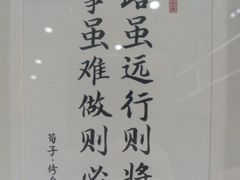 路虽远行则将
事虽难做则必
荀子·修身